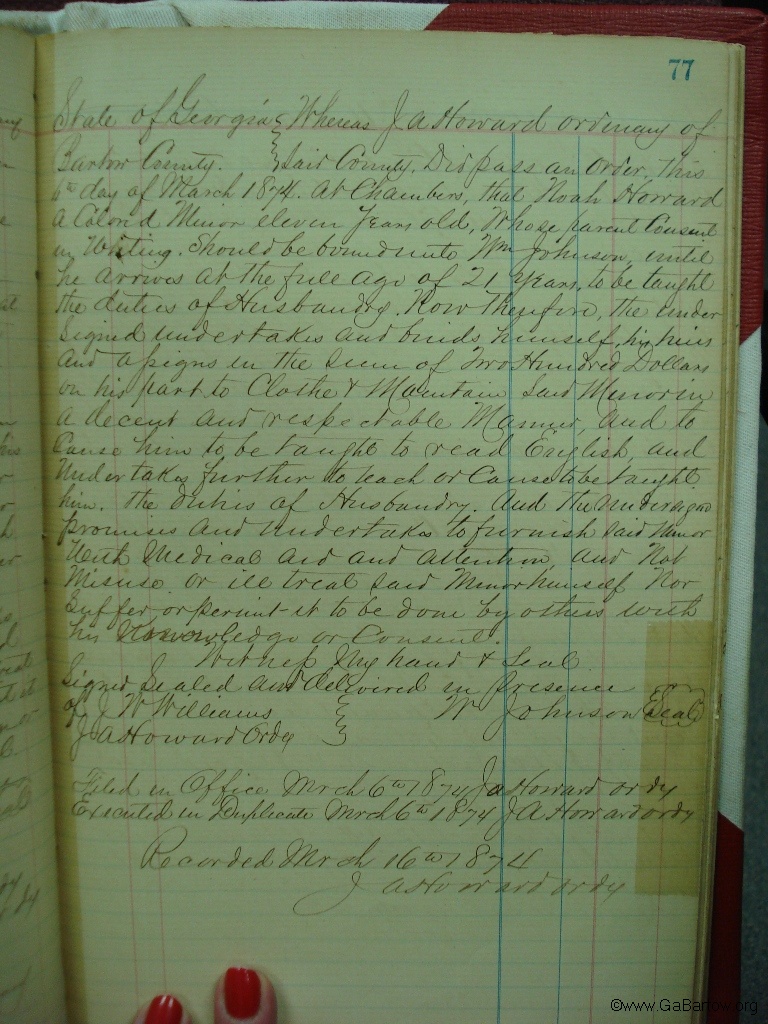 77
State of Georgia } Whereas J A Howard ordinary of
Bartow County. } Said County. Did pass an order, this
6th day of March 1874. at Chambers, that Noah Howard
a Colord Minor eleven Years old, Whose parent Consent
in Writing. Should be bound unto Wm Johnson, until
he arrives at the full age of 21 Years, to be taught
the duties of Husbandry. Now Therefore, the under
Signed undertakes and binds himself, his heirs
and assigns in the Sum of Two Hundred Dollars
on his part to Clothe & Maintain Said Minor in
a decent and respectable Manner, and to
Cause him to be taught to read English, and
Undertakes further to teach or Cause to be taught
him. the duties of Husbandry. And the undersigned
promises and undertakes to furnish said Minor
With Medical aid and attention, and Not
Misuse or ill treat said Minor himself Nor
Suffer or permit it to be done by others with
his Knowledge or Consent.
Witness My hand & Seal
Signed Sealed and delivered in presence
of J W Williams } Wm Johnson Seal
J A Howard Ordy }
Filed in Office Mrch 6th 1874 J A Howard ordy
Executed in Duplicate Mrch 6th 1874 J A Howard ordy
Recorded Mrch 16th 1874
J A Howard ordy
©www.GaBartow.org